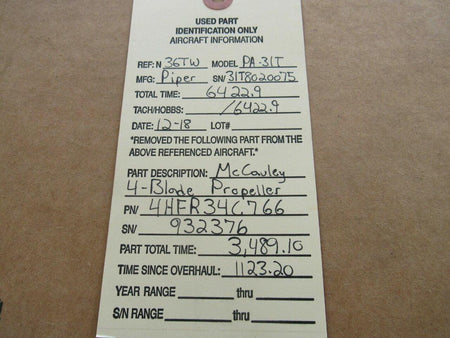 USED PART
IDENTIFICATION ONLY
AIRCRAFT INFORMATION
REF: N 36TW MODEL PA-31T
MFG: Piper SN/ 31T8020075
TOTAL TIME: 6422.9
TACH/HOBBS: /6422.9
DATE: 12-18 LOT#
*REMOVED THE FOLLOWING PART FROM THE
ABOVE REFERENCED AIRCRAFT.*
PART DESCRIPTION: McCauley
4-Blade Propeller
PN/ 4HFR34C766
SN/ 932376
PART TOTAL TIME: 3,489.10
TIME SINCE OVERHAUL: 1123.20
YEAR RANGE thru
S/N RANGE thru